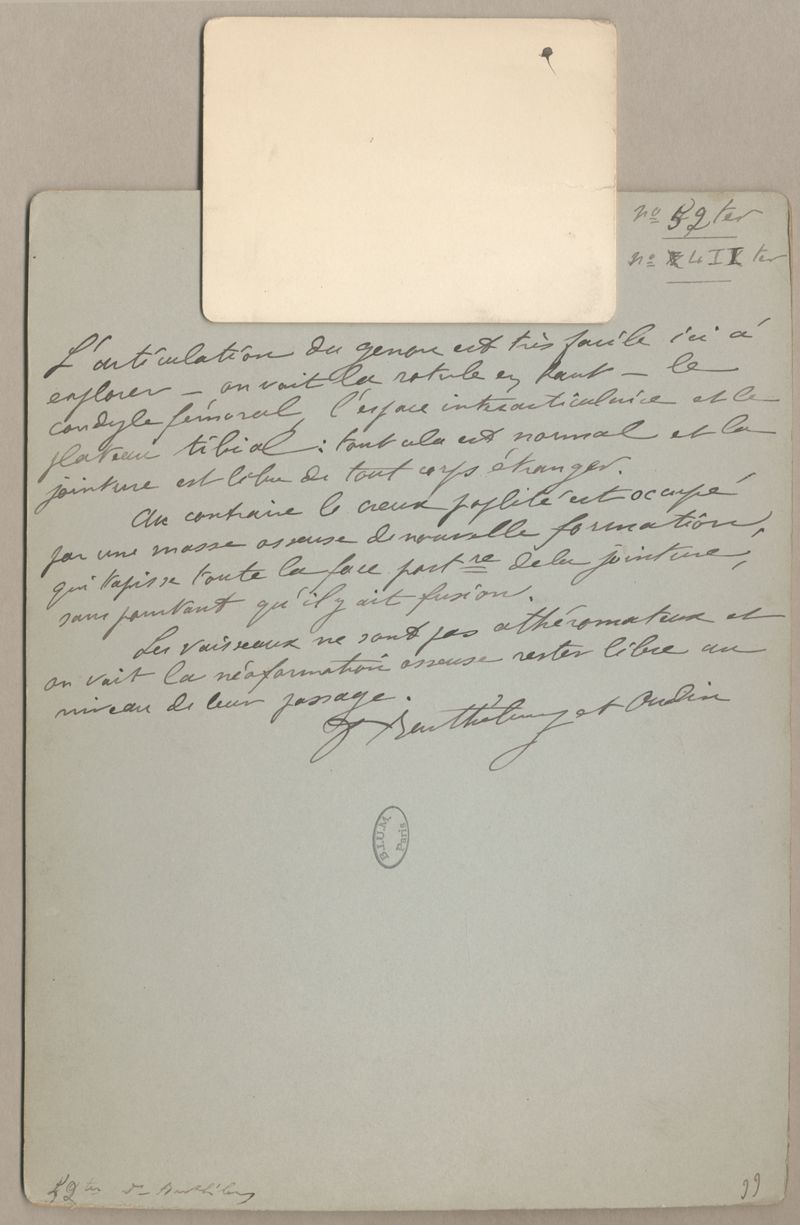 no 52 ter
no LII ter
L'articulation du genou est très facile ici à
explorer — on voit la rotule en haut — le
condyle fémoral, l'espace intraarticulaire et le
plateau tibial : tout cela est normal et la
jointure est libre de tout corps étranger.
Au contraire le creux poplité est occupé
par une masse osseuse de nouvelle formation,
qui tapisse toute la face postre de la jointure,
sans pourtant qu'il y ait fusion.
Les vaisseaux ne sont pas athéromateux et
on voit la néoformation osseuse rester libre au
niveau de leur passage.
Barthélemy et Oudin
B.I.U.M.
Paris
52 ter Dr Barthélemy
99